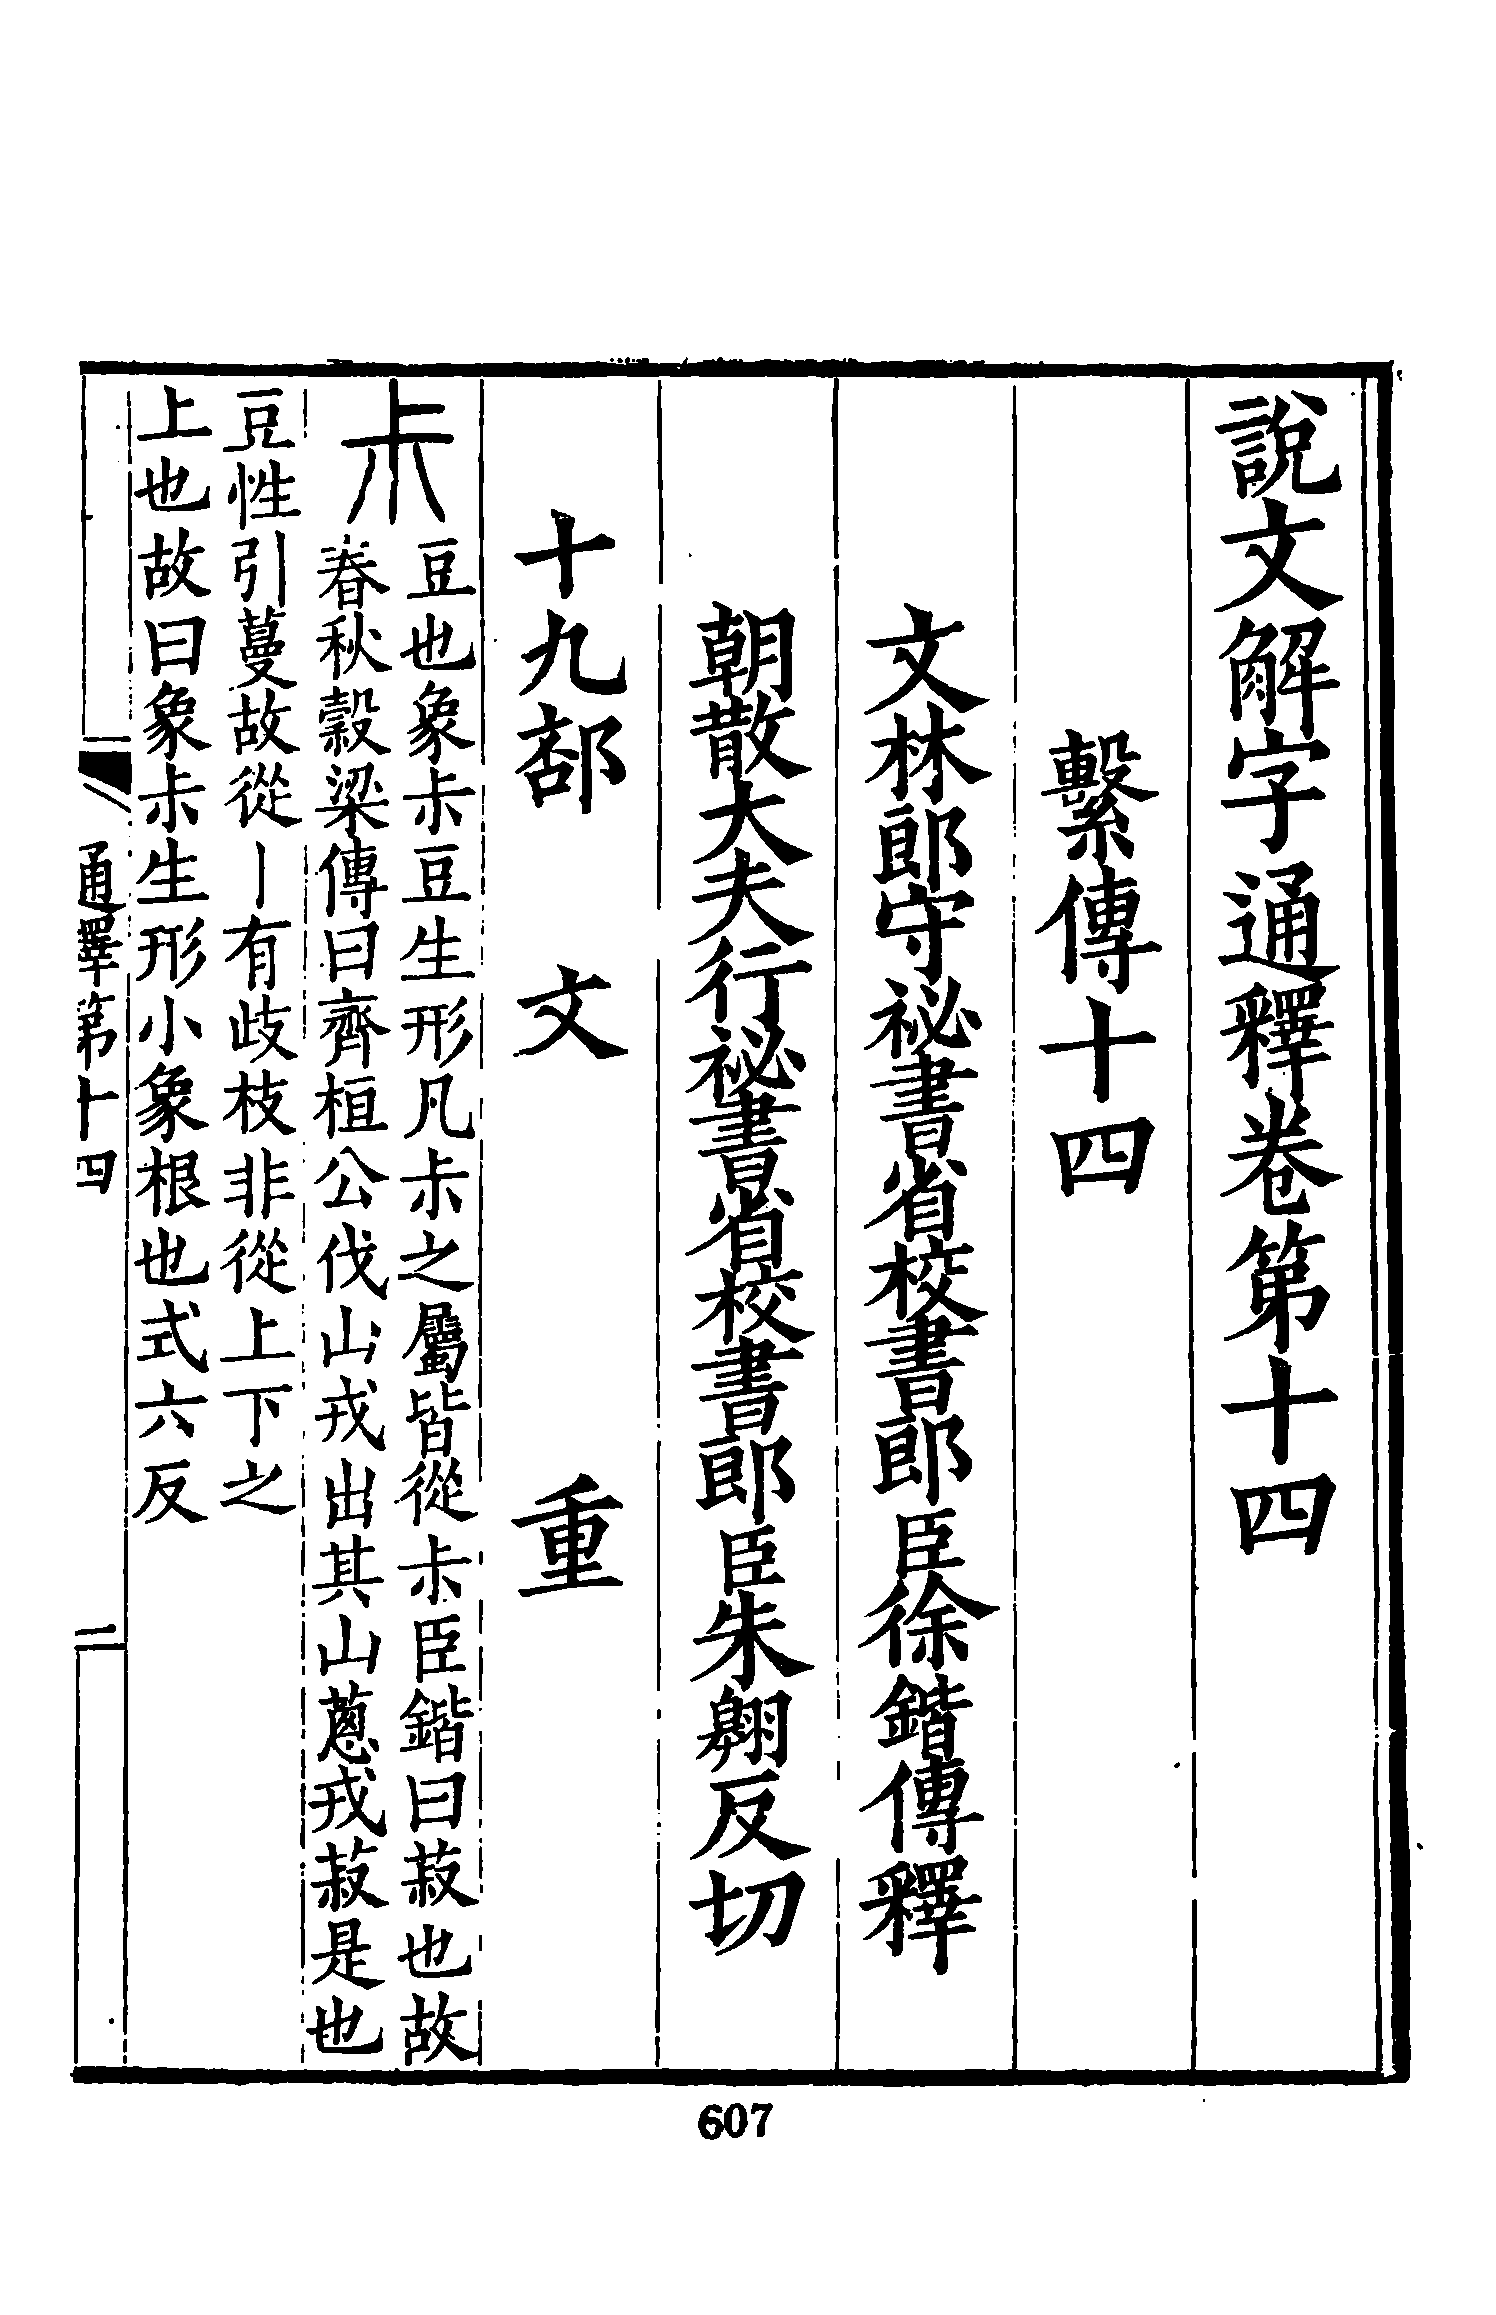 說文解字通釋卷第十四
繫傳十四
文林郎守祕書省校書郎臣徐鍇傳釋
朝散大夫行祕書省校書郎臣朱翱反切
十九部 文 重
尗
豆也象尗豆生形凡尗之屬皆從尗臣鍇曰菽也故
春秋穀梁傳曰齊桓公伐山戎出其山蔥戎菽是也
豆性引蔓故從丨有歧枝非從上下之
上也故曰象尗生形小象根也式六反
通釋第十四
一
607